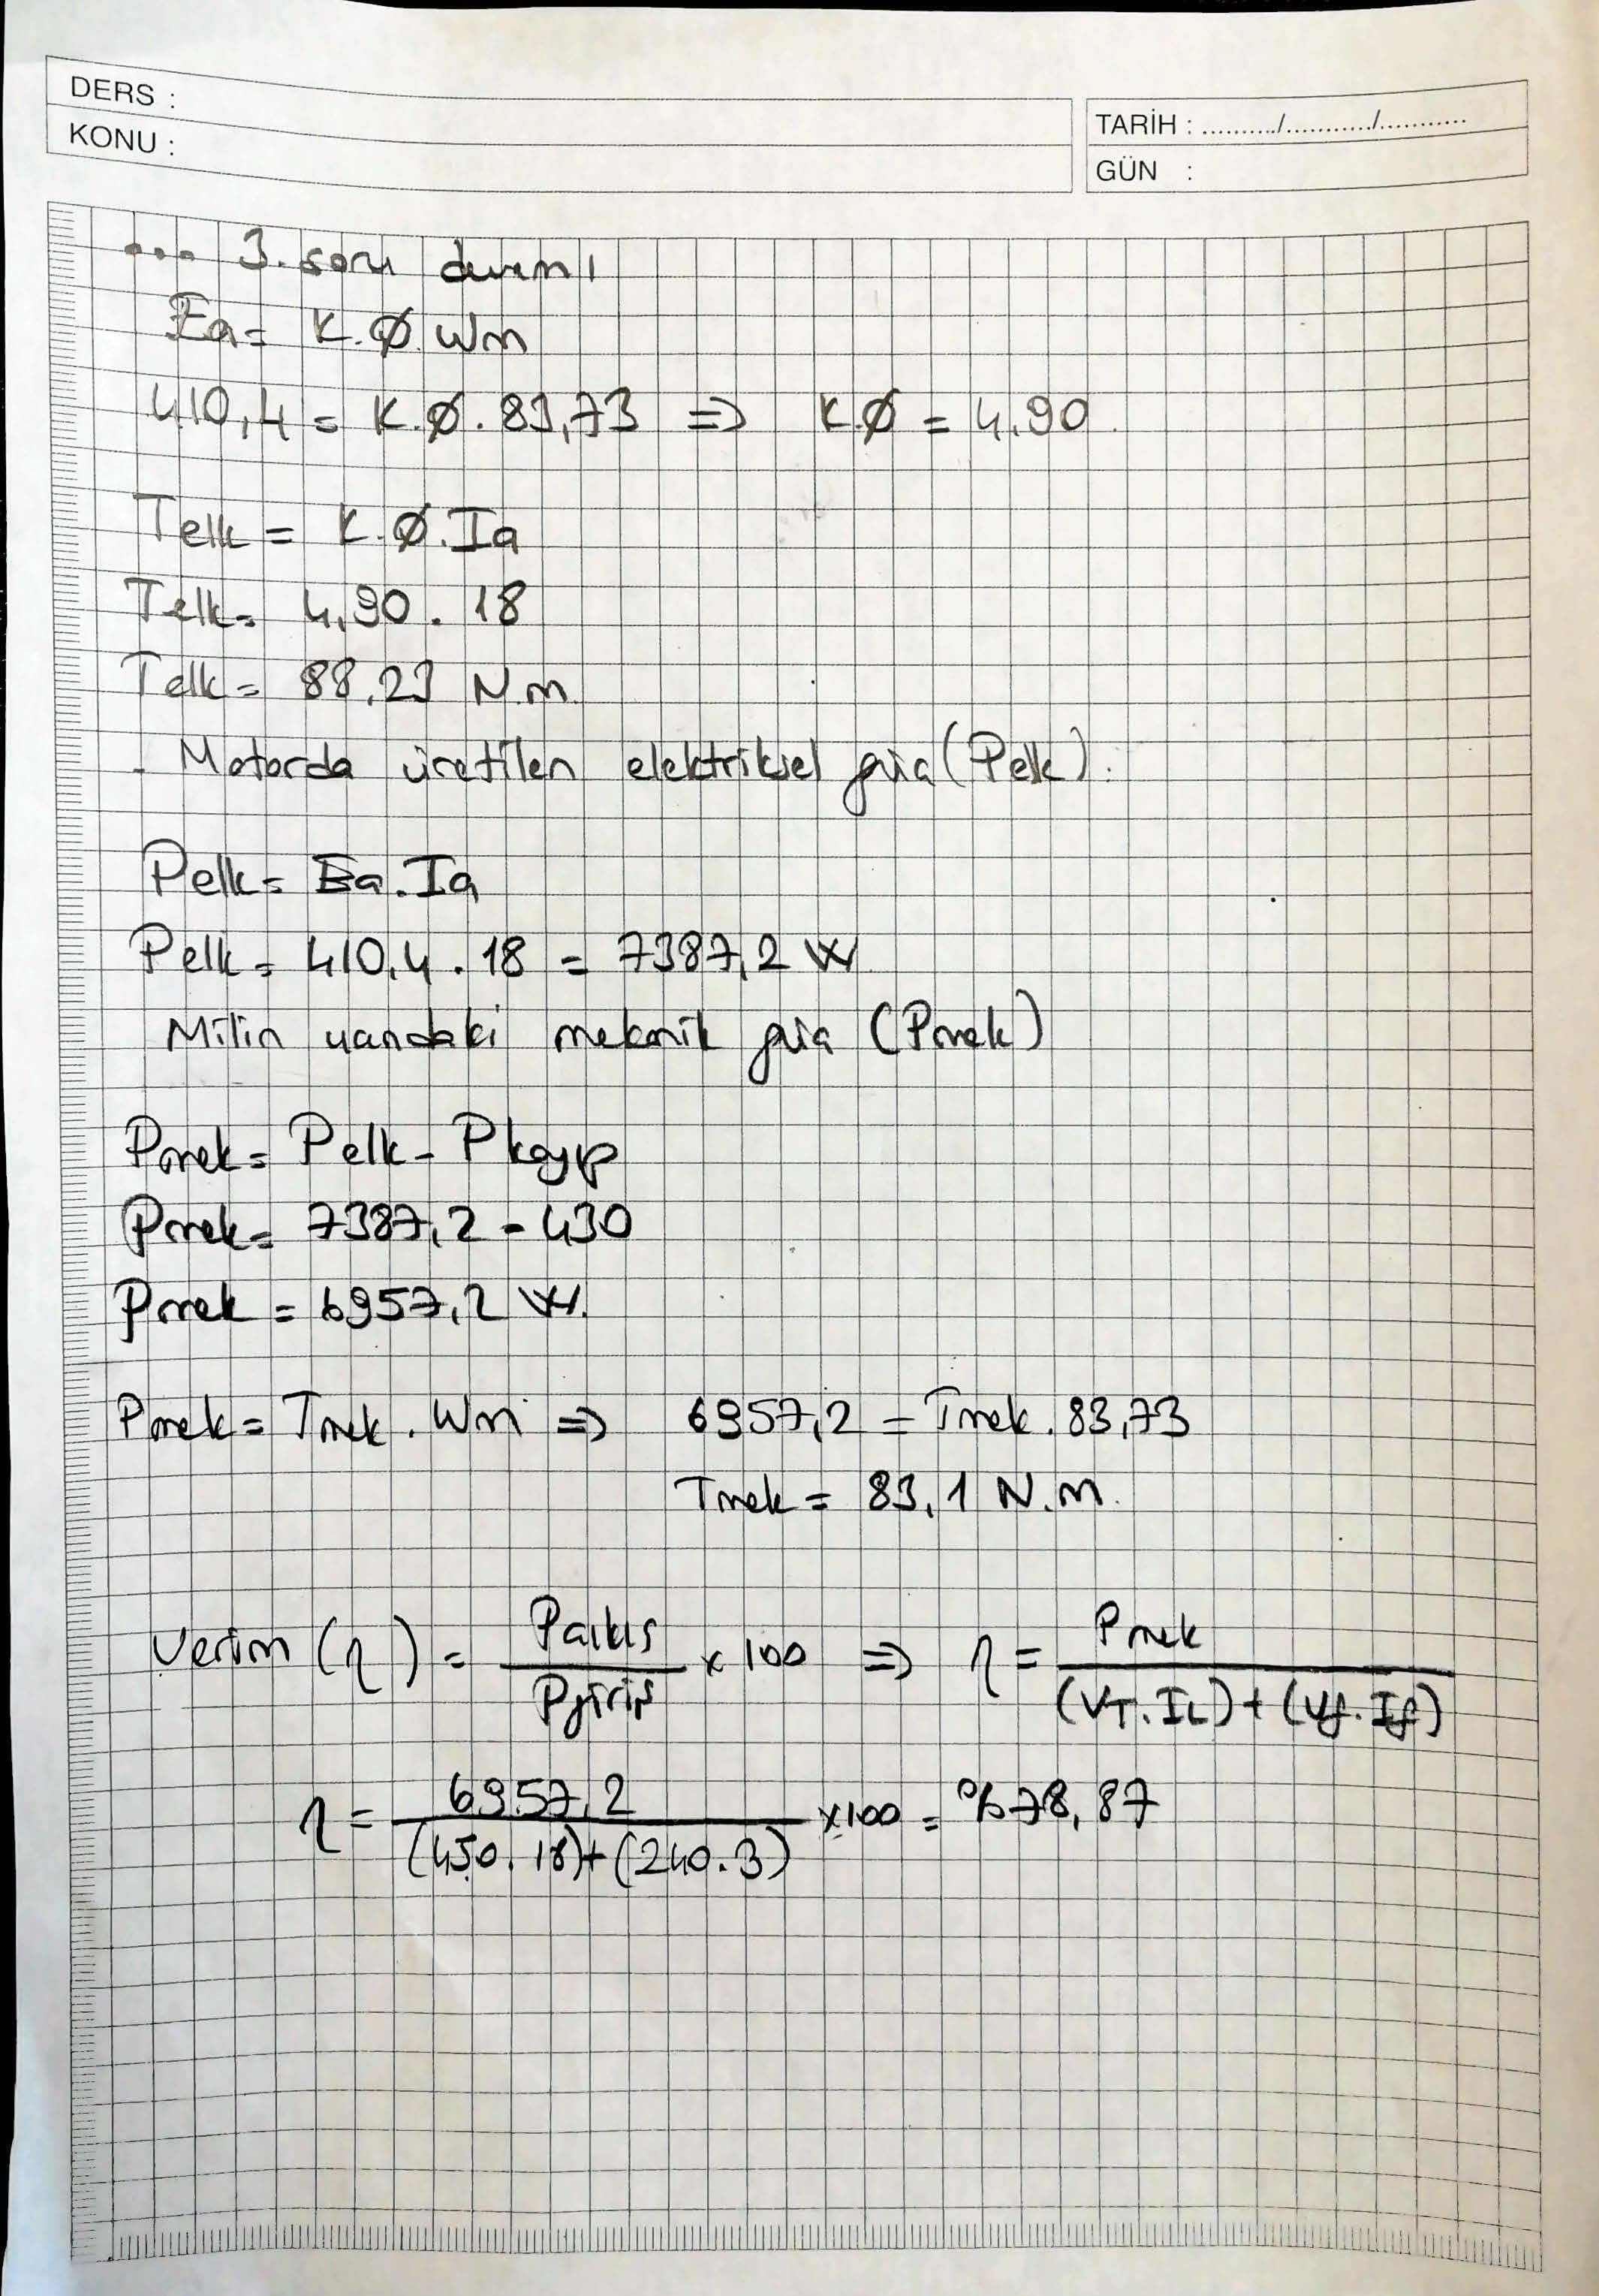 DERS :
KONU :
TARİH : ........../.........../...........
GÜN :
... 3. soru devamı
Ea = K.Ø.Wm
410,4 = K.Ø.83,73 => K.Ø = 4,90
Telk = K.Ø.Ia
Telk = 4,90 . 18
Telk = 88,23 N.m
- Motorda üretilen elektriksel güç (Pelk) :
Pelk = Ea.Ia
Pelk = 410,4 . 18 = 7387,2 W
Milin ucundaki mekanik güç (Pmek)
Pmek = Pelk - Pkayıp
Pmek = 7387,2 - 430
Pmek = 6957,2 W.
Pmek = Tmek . Wm => 6957,2 = Tmek . 83,73
Tmek = 83,1 N.m.
Verim (η) = Pçıkış / Pgiriş x 100 => η = Pmek / (VT.IL) + (Vf.If)
η = 6957,2 / (450.18)+(240.3) x100 = %78,87